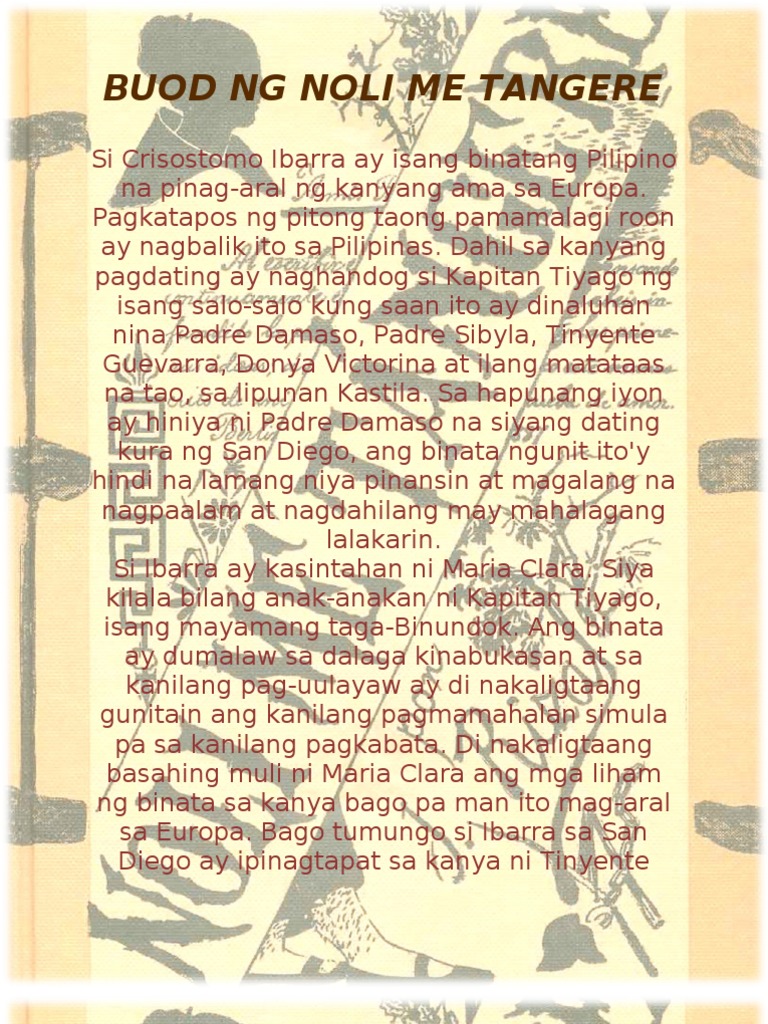 BUOD NG NOLI ME TANGERE
Si Crisostomo Ibarra ay isang binatang Pilipino
na pinag-aral ng kanyang ama sa Europa.
Pagkatapos ng pitong taong pamamalagi roon
ay nagbalik ito sa Pilipinas. Dahil sa kanyang
pagdating ay naghandog si Kapitan Tiyago ng
isang salo-salo kung saan ito ay dinaluhan
nina Padre Damaso, Padre Sibyla, Tinyente
Guevarra, Donya Victorina at ilang matataas
na tao, sa lipunan Kastila. Sa hapunang iyon
ay hiniya ni Padre Damaso na siyang dating
kura ng San Diego, ang binata ngunit ito'y
hindi na lamang niya pinansin at magalang na
nagpaalam at nagdahilang may mahalagang
lalakarin.
Si Ibarra ay kasintahan ni Maria Clara, Siya
kilala bilang anak-anakan ni Kapitan Tiyago,
isang mayamang taga-Binundok. Ang binata
ay dumalaw sa dalaga kinabukasan at sa
kanilang pag-uulayaw ay di nakaligtaang
gunitain ang kanilang pagmamahalan simula
pa sa kanilang pagkabata. Di nakaligtaang
basahing muli ni Maria Clara ang mga liham
ng binata sa kanya bago pa man ito mag-aral
sa Europa. Bago tumungo si Ibarra sa San
Diego ay ipinagtapat sa kanya ni Tinyente
NOLI ME TANGERE
Berlin
J. Rizal